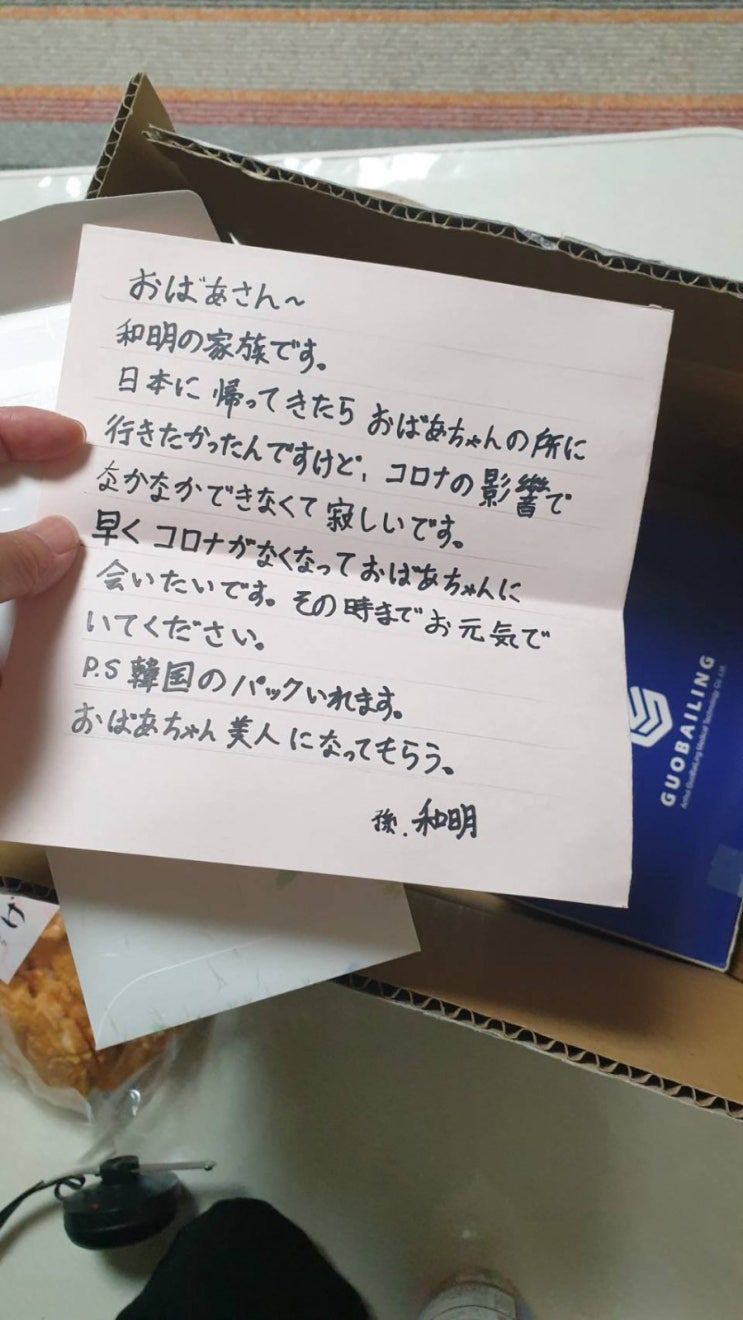 おばあさん～
和明の家族です。
日本に帰ってきたら おばあちゃんの所に
行きたかったんですけど、コロナの影響で
なかなかできなくて 寂しいです。
早く コロナがなくなって おばあちゃんに
会いたいです。その時まで お元気で
いてください。
P.S 韓国のパックいれます。
おばあちゃん 美人になってもらう。
孫. 和明
GUOBAILING